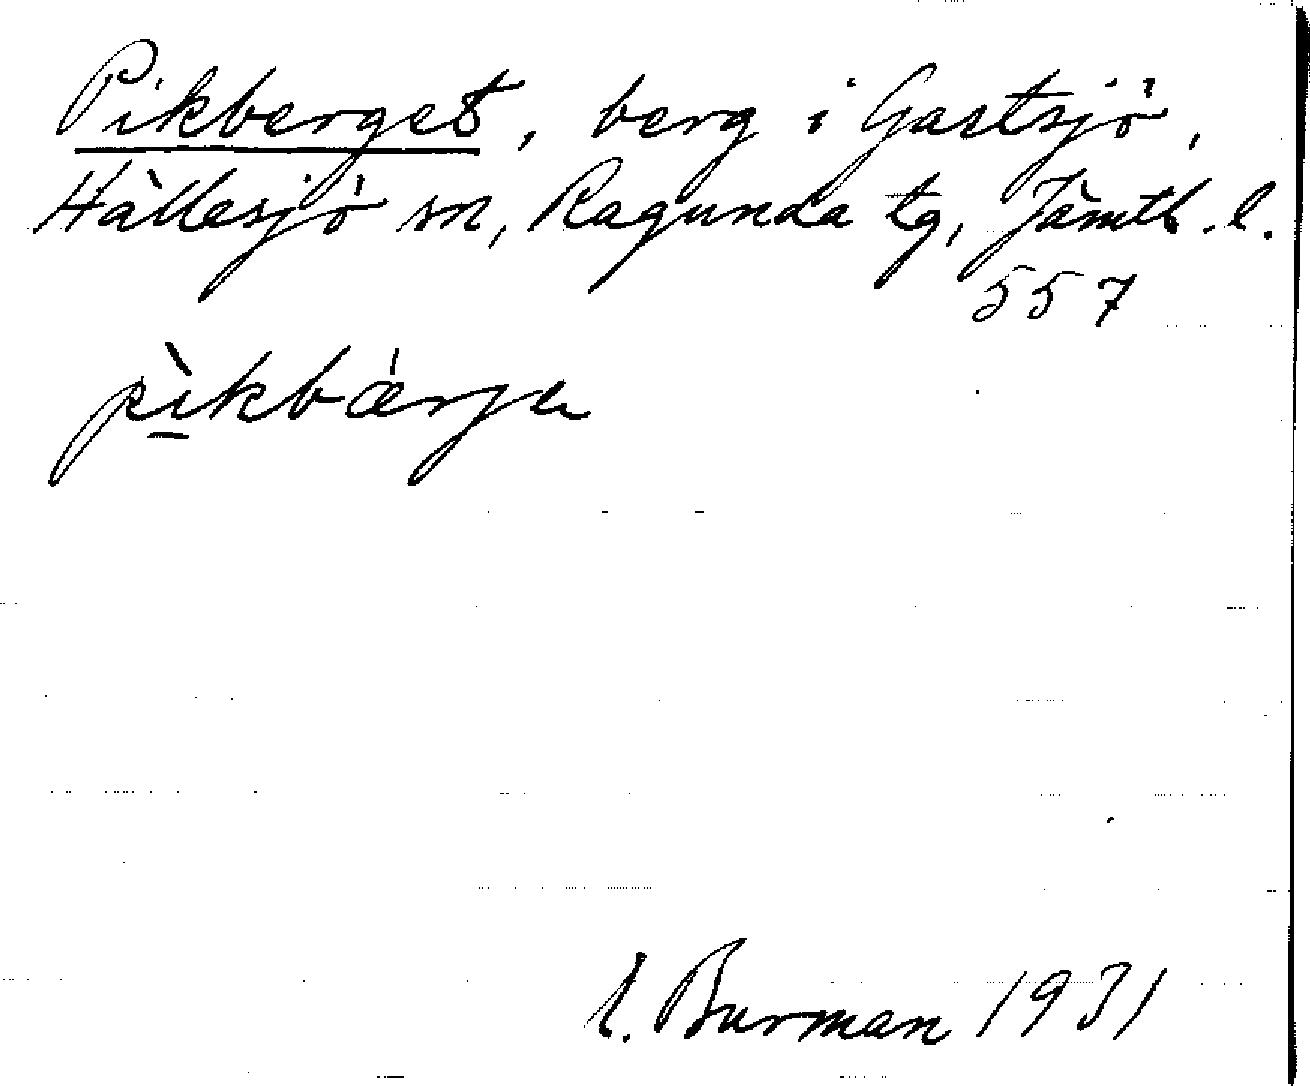 Pikberget, berg i Gastsjö,
Hällesjö sn, Ragunda tg, Jämtl. l.
557
pìkbárjə
l. Burman 1931